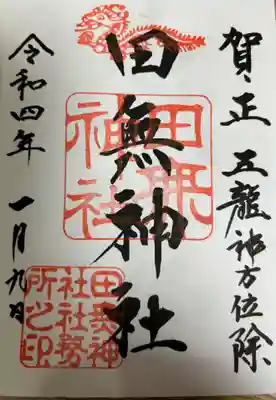 賀正 五龍神方位除
田無神社
令和四年 一月九日
田無神社
田無神社社務所之印